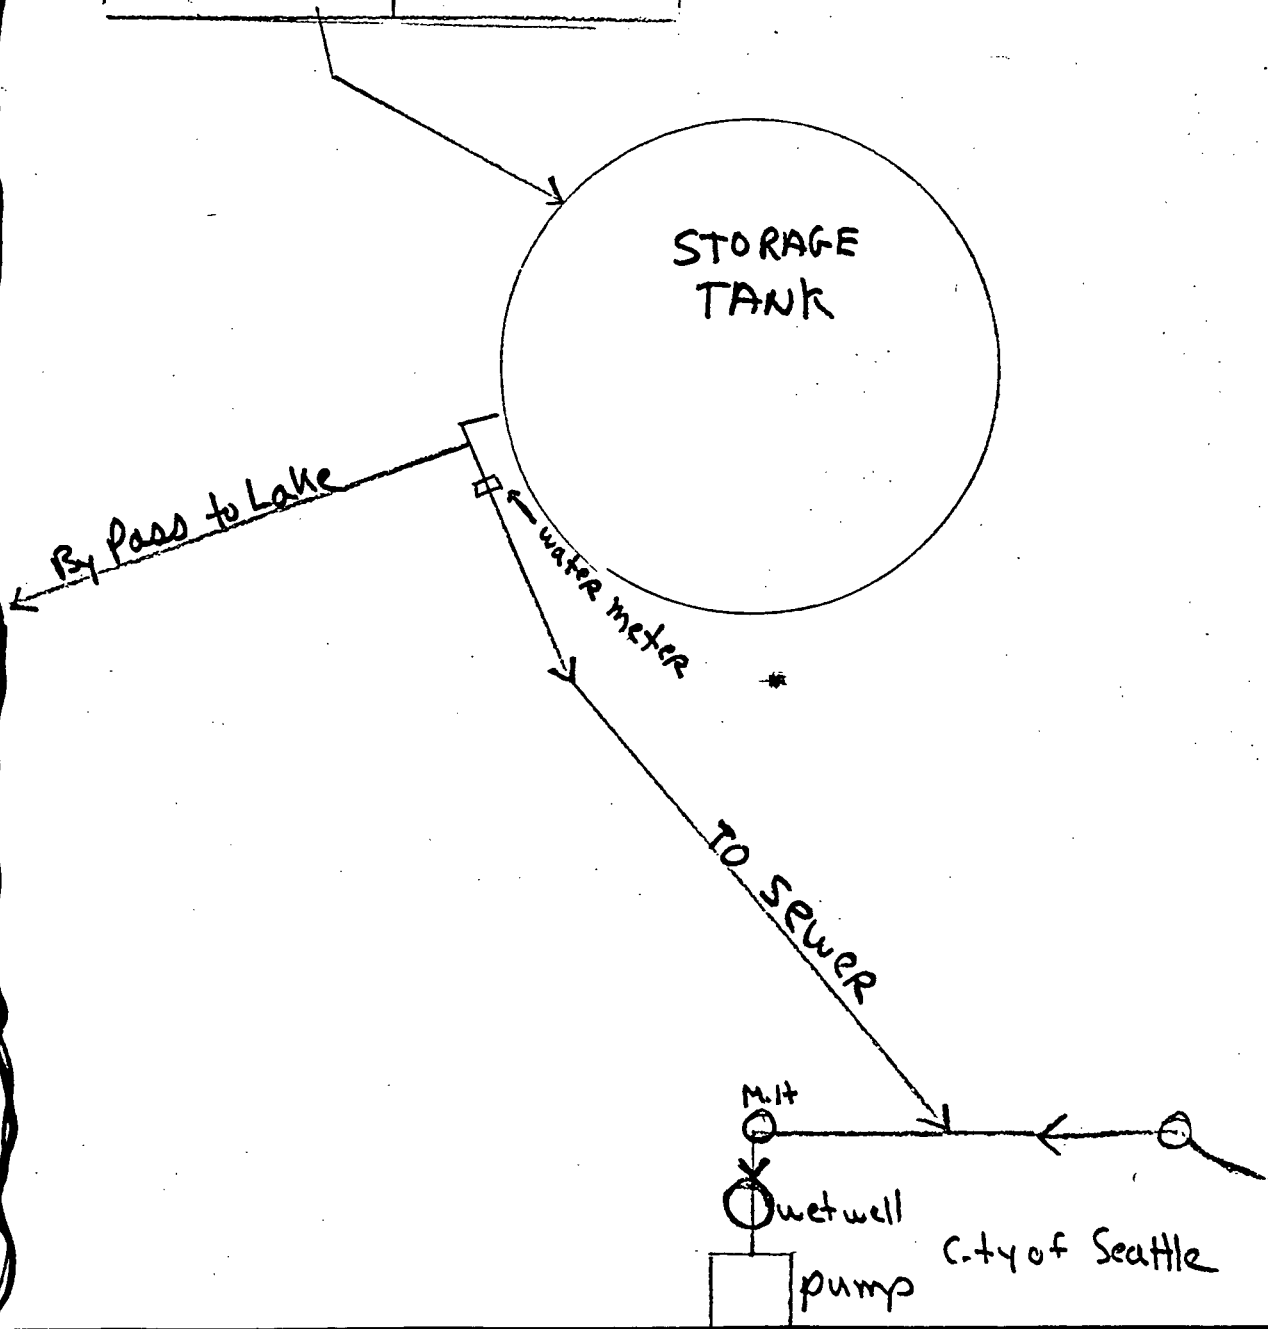 STORAGE
TANK
By Pass to Lake
water meter
TO SEWER
M.H
wetwell
City of Seattle
pump